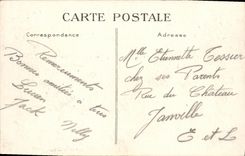 CARTE POSTALE
Correspondance
Adresse
Remerciements
Bonnes amitiés à tous
Lucien
Jack
Nelly
Mlle Etiennette Tessier
chez ses Parents
Rue du Château
Janville
E et L